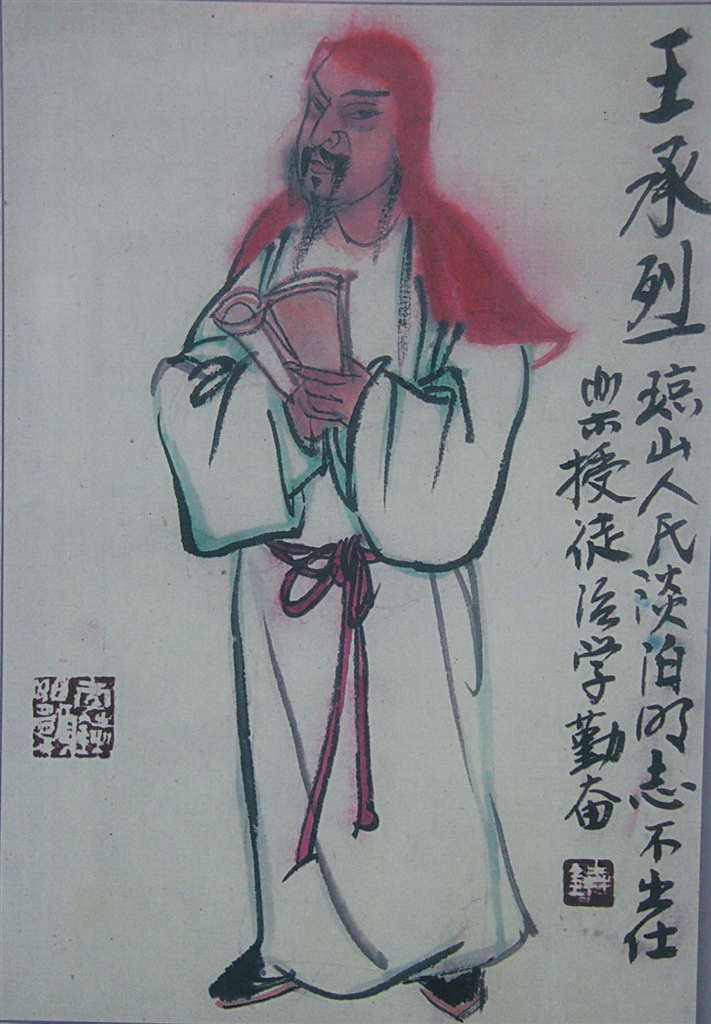 王承烈
琼山人氏淡泊明志不出仕
樂授徒治学勤奋